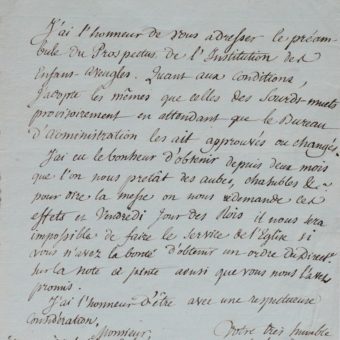 J'ai l'honneur de vous adresser le préam-
bule du Prospectus de l'Institution des
Enfans aveugles. Quant aux Conditions,
J'adopte les mêmes que celles des Sourds-muets
provisoirement en attendant que le Bureau
d'administration les ait approuvés ou changés.
J'ai eu le bonheur d'obtenir depuis deux mois
que l'on nous pretât des aubes, chasubles &c
pour dire la messe on nous redemande ces
effets en Vendredi Jour des Rois il nous sera
impossible de faire le Service de l'Eglise si
vous n'avez la bonté d'obtenir un ordre du Direct.
sur la note ci jointe ainsi que vous nous l'avez
promis.
J'ai l'honneur d'être avec une respectueuse
Considération,
Monsieur,
Votre très humble